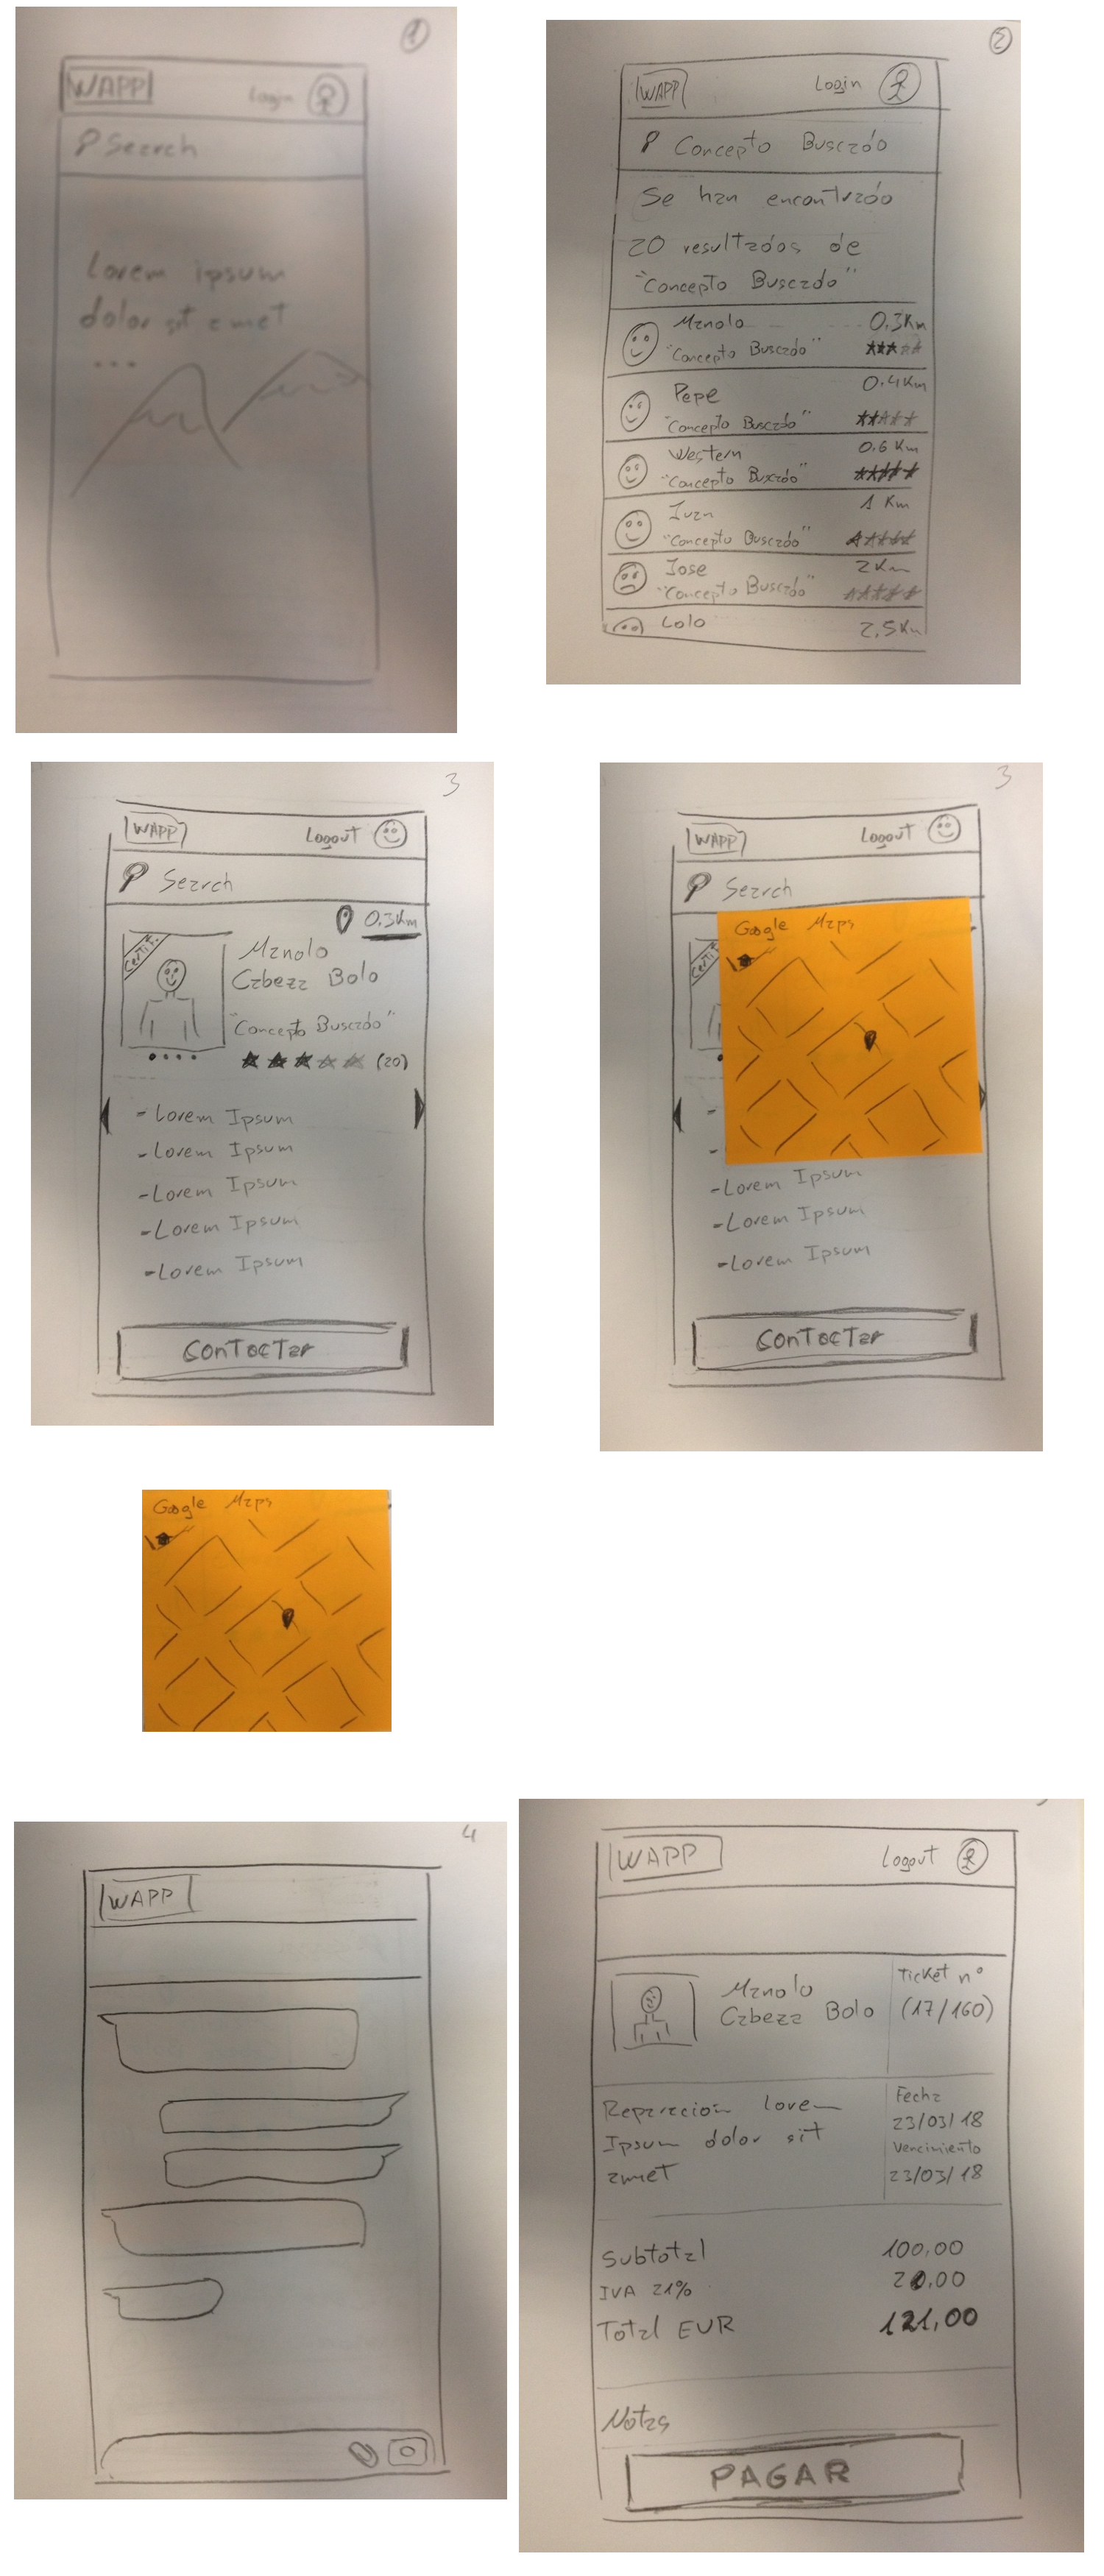 1
WAPP Login
Search
Lorem ipsum
dolor sit amet
...
2
WAPP Login
Concepto Buscado
Se han encontrado
20 resultados de
"Concepto Buscado"
Manolo 0.3Km
"Concepto Buscado"
Pepe 0.4Km
"Concepto Buscado"
Western 0.6 Km
"Concepto Buscado"
Ivan 1 Km
"Concepto Buscado"
Jose 2Km
"Concepto Buscado"
Lolo 2,5Km
3
WAPP Logout
Search
0.3Km
Certif.
Manolo
Cabeza Bolo
"Concepto Buscado"
(20)
- Lorem Ipsum
- Lorem Ipsum
- Lorem Ipsum
- Lorem Ipsum
- Lorem Ipsum
Contactar
3
WAPP Logout
Search
Google Maps
- Lorem Ipsum
- Lorem Ipsum
- Lorem Ipsum
Contactar
Google Maps
4
WAPP
WAPP Logout
Manolo
Cabeza Bolo
Ticket nº
(17/160)
Reparación Lorem
Ipsum dolor sit
amet
Fecha
23/03/18
Vencimiento
23/03/18
Subtotal 100,00
IVA 21%
Total EUR 121,00
Notas
PAGAR